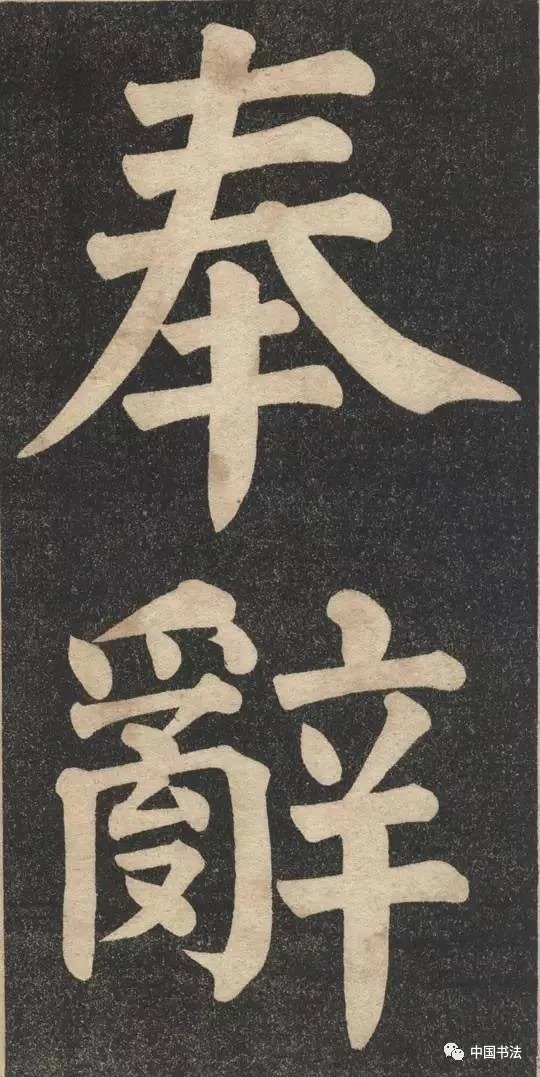 奉
辭
中国书法